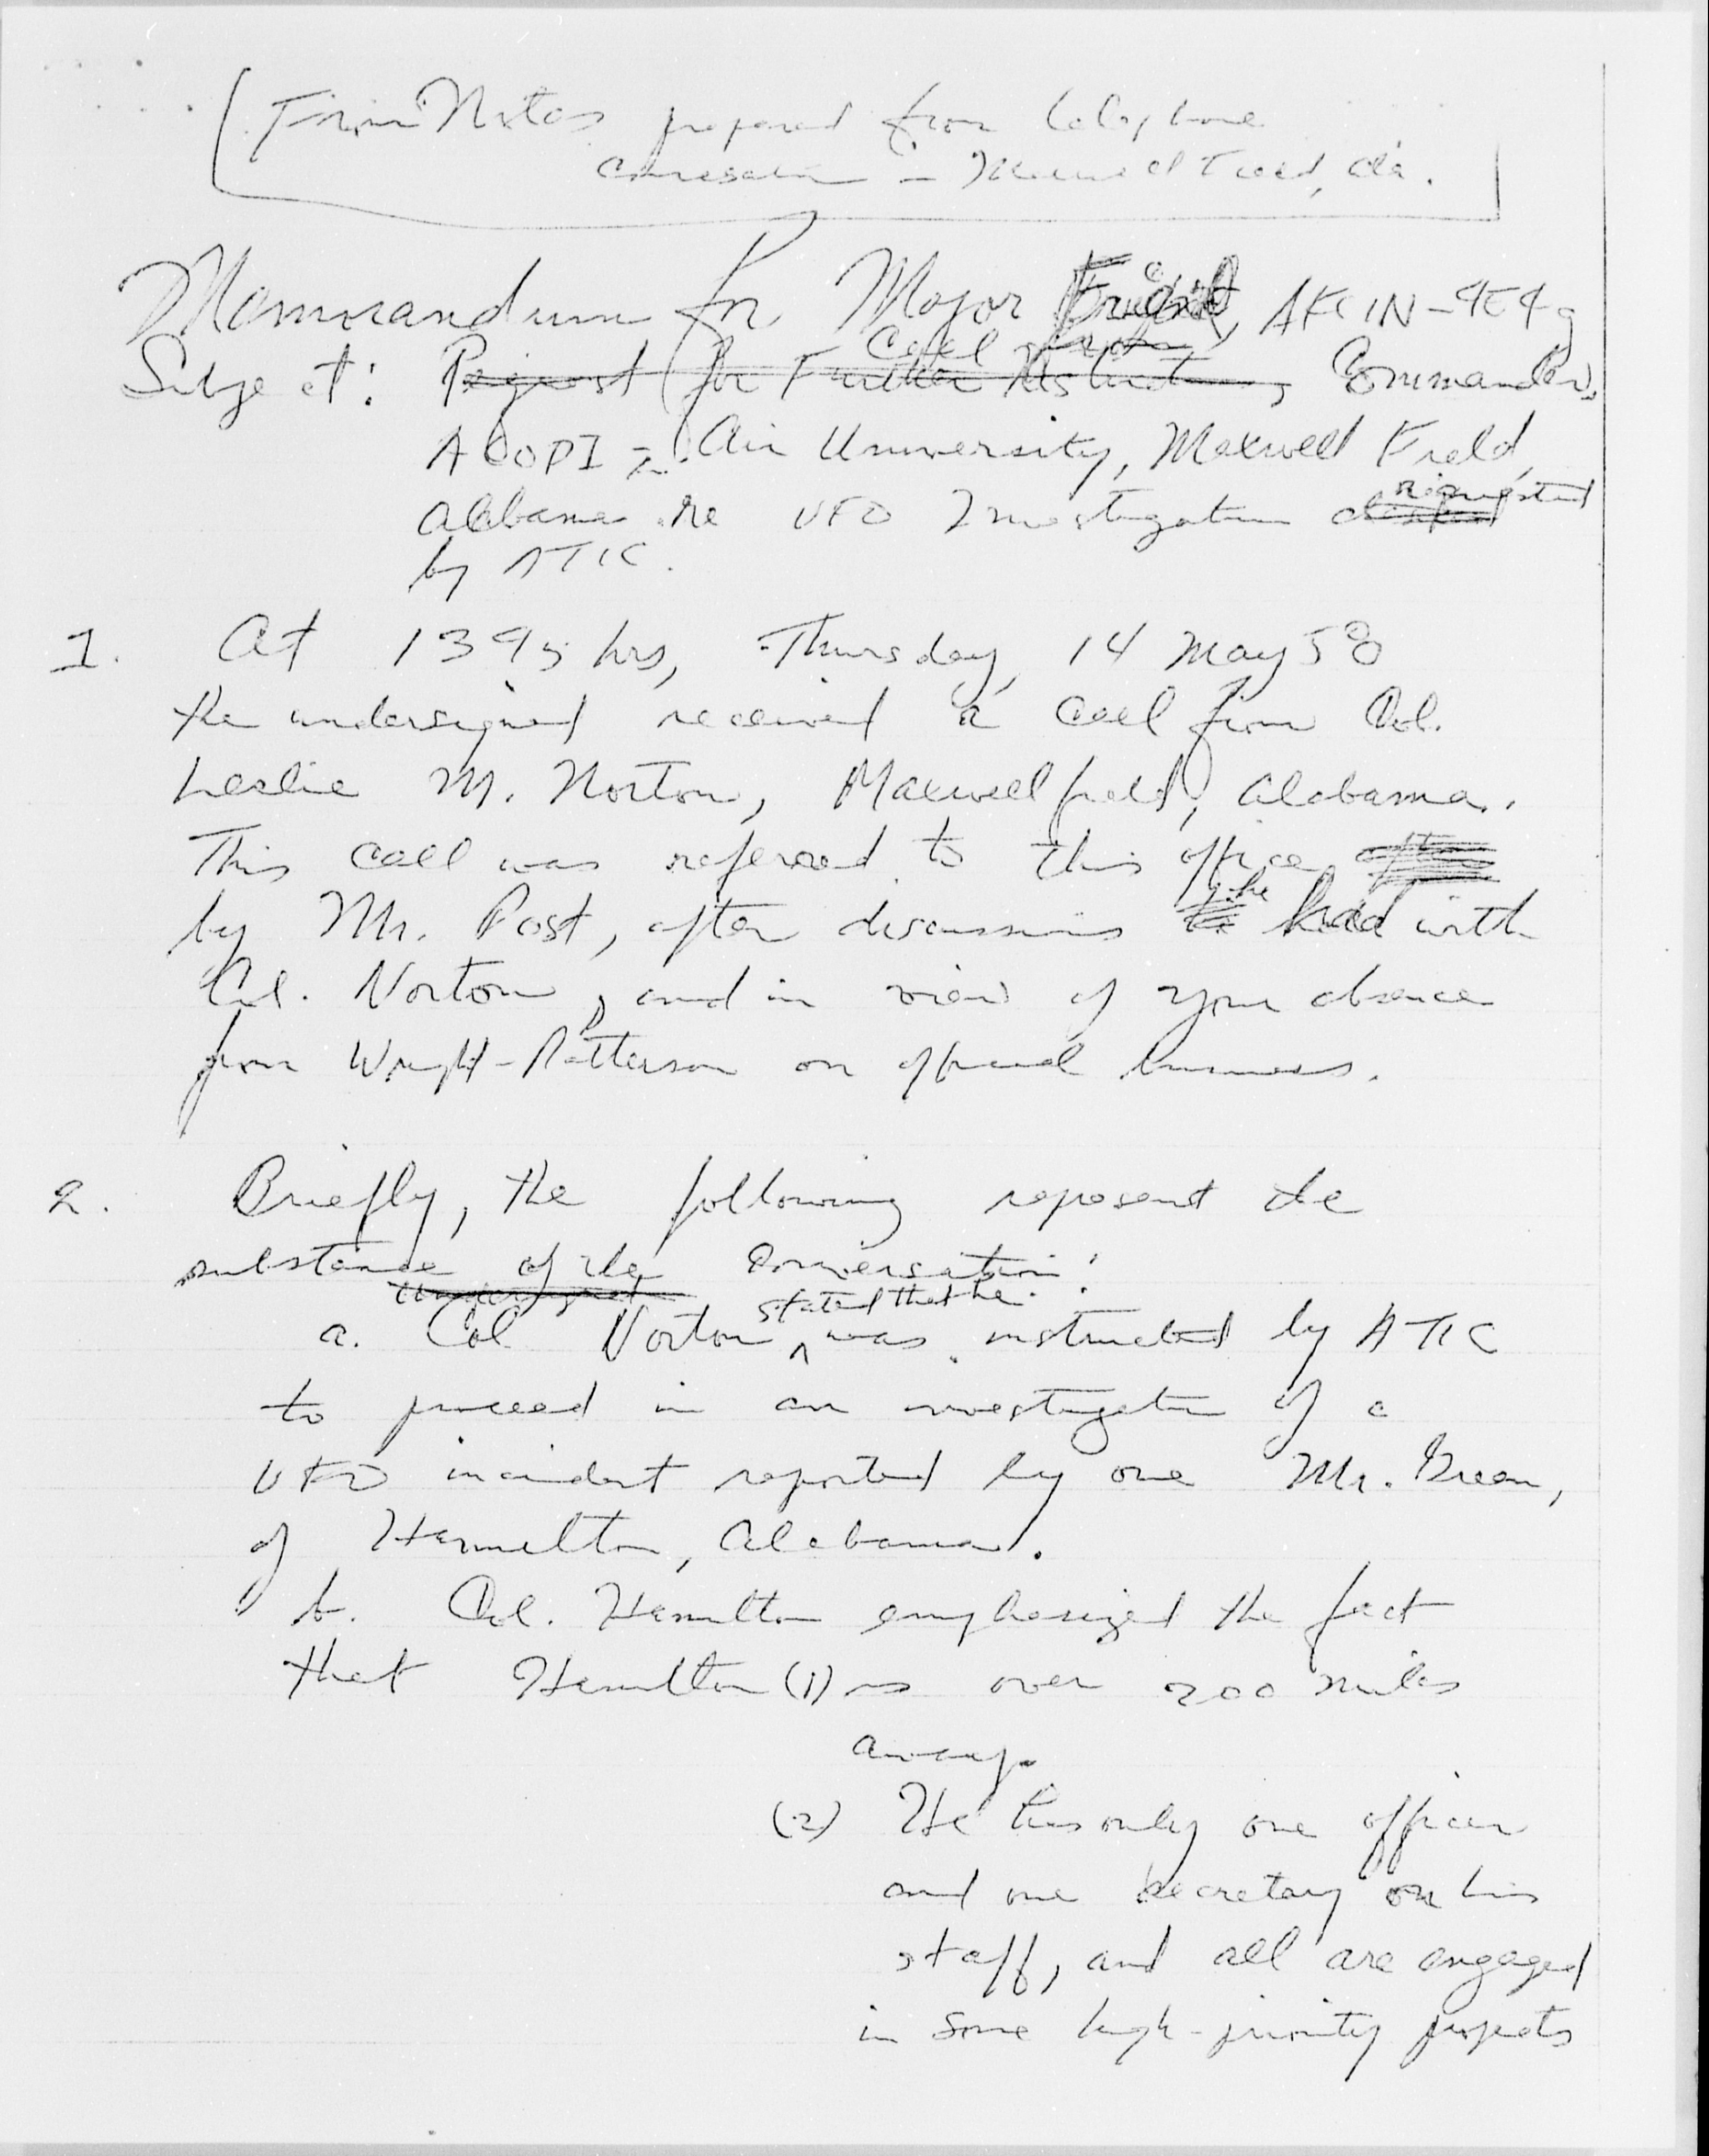 From Notes prepared from telephone
conversation - Maxwell Field, Ala.
Memorandum for Major AFCIN-4E4g
Subject: Request for Further Call from Commander,
ACOPI Air University, Maxwell Field,
Alabama re UFO Investigation requested
by ATIC.
1. At 1345 hrs, Thursday, 14 May 58
the undersigned received a call from Col.
Leslie M. Norton, Maxwell field, Alabama.
This call was referred to this office
by Mr. Post, after discussions he had with
Col. Norton, and in view of your absence
from Wright-Patterson on official business.
2. Briefly, the following represent the
substance of the conversation:
undersigned stated that he
a. Col Norton ^ was instructed by ATIC
to proceed in an investigation of a
UFO incident reported by one Mr. Green,
of Hamilton, Alabama.
b. Col. Hamilton emphasized the fact
that Hamilton (1) is over 200 miles
away.
(2) He has only one officer
and one secretary on his
staff, and all are engaged
in some high-priority projects